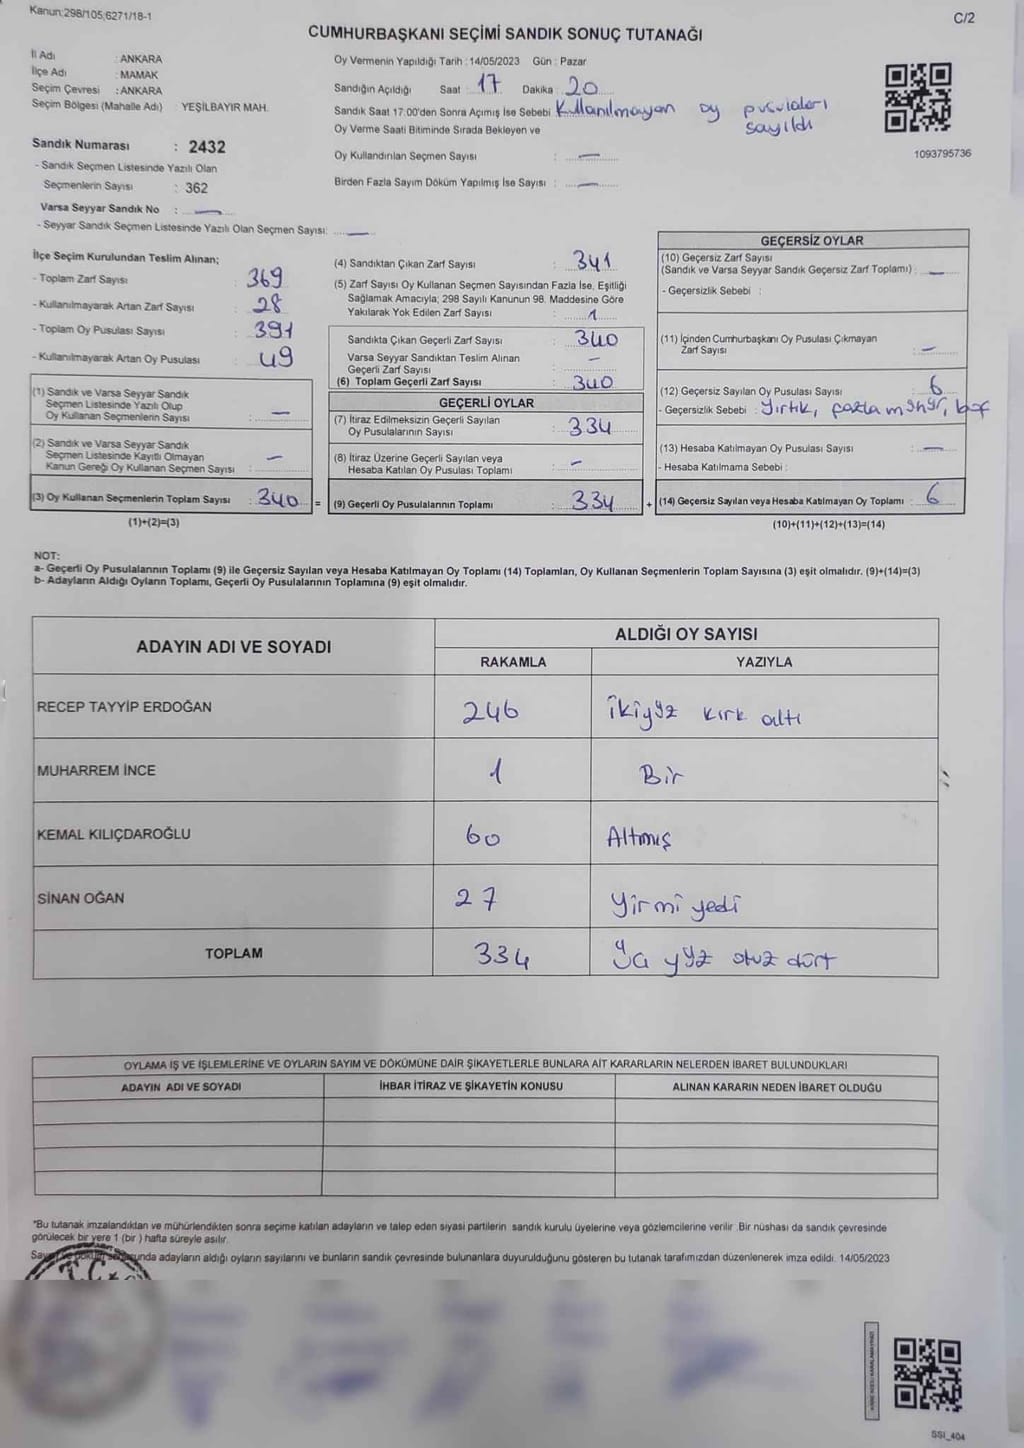 Kanun:298/105;6271/18-1
C/2
CUMHURBAŞKANI SEÇİMİ SANDIK SONUÇ TUTANAĞI
İl Adı : ANKARA
İlçe Adı : MAMAK
Seçim Çevresi : ANKARA
Seçim Bölgesi (Mahalle Adı) : YEŞİLBAYIR MAH.
Sandık Numarası : 2432
- Sandık Seçmen Listesinde Yazılı Olan
Seçmenlerin Sayısı : 362
Varsa Seyyar Sandık No : —
- Seyyar Sandık Seçmen Listesinde Yazılı Olan Seçmen Sayısı: —
Oy Vermenin Yapıldığı Tarih : 14/05/2023 Gün : Pazar
Sandığın Açıldığı Saat : 17 Dakika : 20
Sandık Saat 17:00'den Sonra Açımış İse Sebebi Kullanılmayan oy pusulaları
sayıldı
Oy Verme Saati Bitiminde Sırada Bekleyen ve
Oy Kullandırılan Seçmen Sayısı : —
Birden Fazla Sayım Döküm Yapılmış İse Sayısı : —
1093795736
İlçe Seçim Kurulundan Teslim Alınan;
- Toplam Zarf Sayısı : 369
- Kullanılmayarak Artan Zarf Sayısı : 28
- Toplam Oy Pusulası Sayısı : 391
- Kullanılmayarak Artan Oy Pusulası : 49
(1) Sandık ve Varsa Seyyar Sandık
Seçmen Listesinde Yazılı Olup
Oy Kullanan Seçmenlerin Sayısı : —
(2) Sandık ve Varsa Seyyar Sandık
Seçmen Listesinde Kayıtlı Olmayan
Kanun Gereği Oy Kullanan Seçmen Sayısı : —
(3) Oy Kullanan Seçmenlerin Toplam Sayısı : 340 =
(1)+(2)=(3)
(4) Sandıktan Çıkan Zarf Sayısı : 341
(5) Zarf Sayısı Oy Kullanan Seçmen Sayısından Fazla İse, Eşitliği
Sağlamak Amacıyla, 298 Sayılı Kanunun 98. Maddesine Göre
Yakılarak Yok Edilen Zarf Sayısı : 1
Sandıkta Çıkan Geçerli Zarf Sayısı : 340
Varsa Seyyar Sandıktan Teslim Alınan
Geçerli Zarf Sayısı : —
(6) Toplam Geçerli Zarf Sayısı : 340
GEÇERLİ OYLAR
(7) İtiraz Edilmeksizin Geçerli Sayılan
Oy Pusulalarının Sayısı : 334
(8) İtiraz Üzerine Geçerli Sayılan veya
Hesaba Katılan Oy Pusulası Toplamı : —
(9) Geçerli Oy Pusulalarının Toplamı : 334 +
GEÇERSİZ OYLAR
(10) Geçersiz Zarf Sayısı
(Sandık ve Varsa Seyyar Sandık Geçersiz Zarf Toplamı) : —
- Geçersizlik Sebebi :
(11) İçinden Cumhurbaşkanı Oy Pusulası Çıkmayan
Zarf Sayısı : —
(12) Geçersiz Sayılan Oy Pusulası Sayısı : 6
- Geçersizlik Sebebi : Yırtık, fazla mühür, boş
(13) Hesaba Katılmayan Oy Pusulası Sayısı : —
- Hesaba Katılmama Sebebi :
(14) Geçersiz Sayılan veya Hesaba Katılmayan Oy Toplamı : 6
(10)+(11)+(12)+(13)=(14)
NOT:
a- Geçerli Oy Pusulalarının Toplamı (9) ile Geçersiz Sayılan veya Hesaba Katılmayan Oy Toplamı (14) Toplamları, Oy Kullanan Seçmenlerin Toplam Sayısına (3) eşit olmalıdır. (9)+(14)=(3)
b- Adayların Aldığı Oyların Toplamı, Geçerli Oy Pusulalarının Toplamına (9) eşit olmalıdır.
ADAYIN ADI VE SOYADI
ALDIĞI OY SAYISI
RAKAMLA YAZIYLA
RECEP TAYYİP ERDOĞAN 246 İkiyüz kırk altı
MUHARREM İNCE 1 Bir
KEMAL KILIÇDAROĞLU 60 Altmış
SİNAN OĞAN 27 Yirmi yedi
TOPLAM 334 yüz otuz dört
OYLAMA İŞ VE İŞLEMLERİNE VE OYLARIN SAYIM VE DÖKÜMÜNE DAİR ŞİKAYETLERLE BUNLARA AİT KARARLARIN NELERDEN İBARET BULUNDUKLARI
ADAYIN ADI VE SOYADI İHBAR İTİRAZ VE ŞİKAYETİN KONUSU ALINAN KARARIN NEDEN İBARET OLDUĞU
*Bu tutanak imzalandıktan ve mühürlendikten sonra seçime katılan adayların ve talep eden siyasi partilerin sandık kurulu üyelerine veya gözlemcilerine verilir. Bir nüshası da sandık çevresinde
görülecek bir yere 1 (bir ) hafta süreyle asılır.
adayların aldığı oyların sayılarını ve bunların sandık çevresinde bulunanlara duyurulduğunu gösteren bu tutanak tarafımızdan düzenlenerek imza edildi. 14/05/2023
T.C.
SSI_404